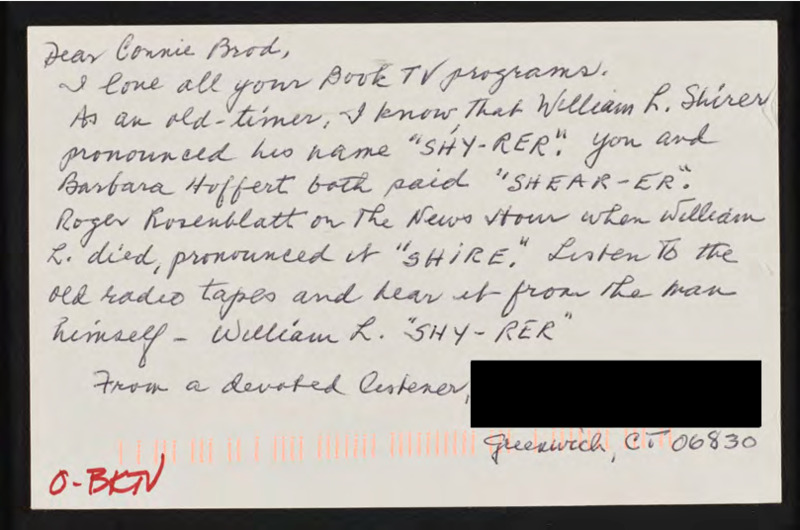 Dear Connie Brod,
I love all your Book TV programs.
As an old-timer, I know, that William L. Shirer
pronounced his name "SHY-RER". You and
Barbara Hoffert both said "SHEAR-ER".
Roger Rosenblatt on The News Hour when William
L. died, pronounced it "SHIRE." Listen to the
old radio tapes and hear it from the man
himself - William L. "SHY-RER"
From a devoted listener,
Greenwich, CT 06830
O-BKTV